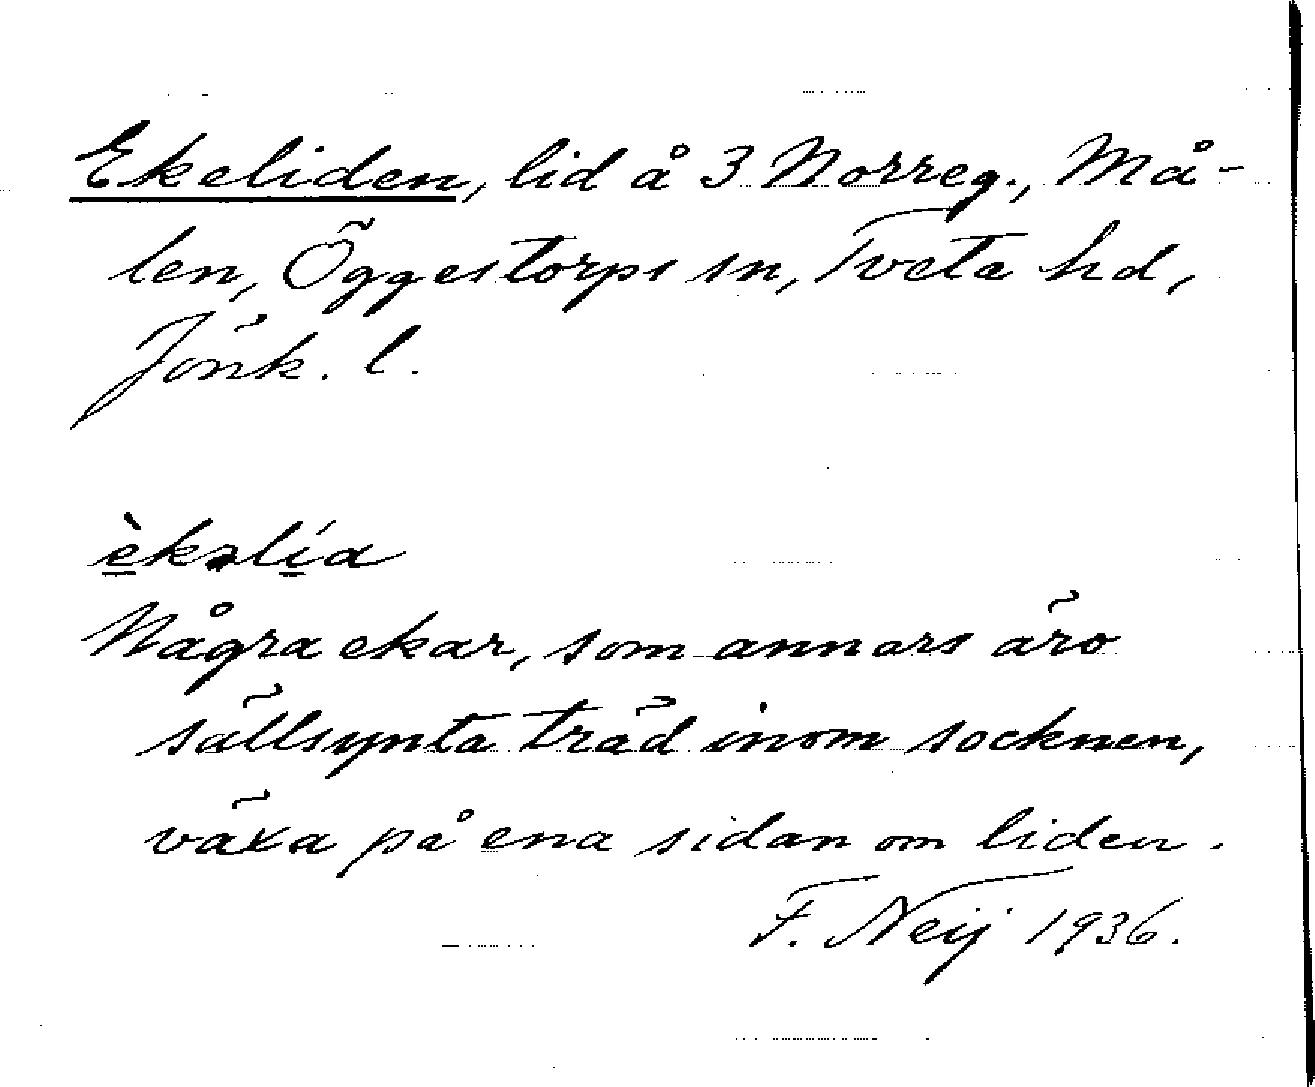 Ekeliden, lid å 3 Norreg., Må-
len, Öggestorps sn, Tveta hd,
Jönk. l.
è̱kəlí̱a
Några ekar, som annars äro
sällsynta träd inom socknen,
växa på ena sidan om liden.
F. Neij 1936.